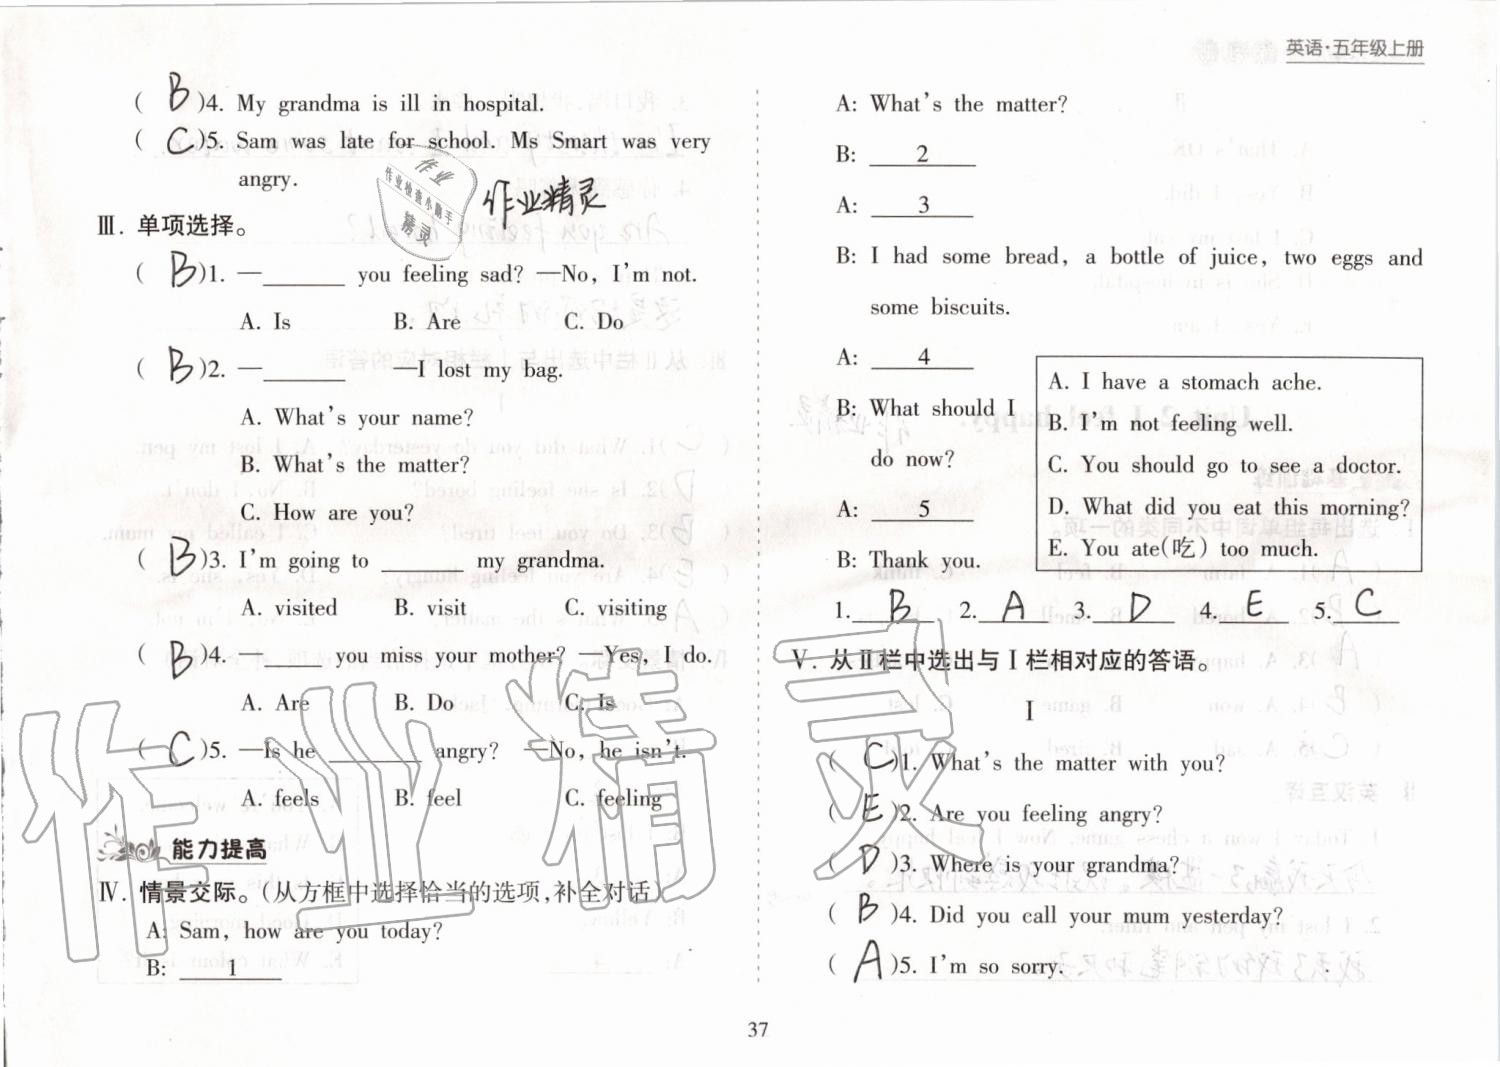 英语·五年级上册
( B )4. My grandma is ill in hospital.
( C )5. Sam was late for school. Ms Smart was very
angry.
作业
作业检查小助手
精灵
作业精灵
Ⅲ. 单项选择。
( B )1. —______ you feeling sad? —No, I'm not.
A. Is B. Are C. Do
( B )2. —______ —I lost my bag.
A. What's your name?
B. What's the matter?
C. How are you?
( B )3. I'm going to ______ my grandma.
A. visited B. visit C. visiting
( B )4. —______ you miss your mother? —Yes, I do.
A. Are B. Do C. Is
( C )5. —Is he ______ angry? —No, he isn't.
A. feels B. feel C. feeling
能力提高
Ⅳ. 情景交际。(从方框中选择恰当的选项,补全对话)
A: Sam, how are you today?
B: 1
A: What's the matter?
B: 2
A: 3
B: I had some bread, a bottle of juice, two eggs and
some biscuits.
A: 4
B: What should I
do now?
A: 5
B: Thank you.
A. I have a stomach ache.
B. I'm not feeling well.
C. You should go to see a doctor.
D. What did you eat this morning?
E. You ate(吃) too much.
1. B 2. A 3. D 4. E 5. C
Ⅴ. 从Ⅱ栏中选出与Ⅰ栏相对应的答语。
Ⅰ
( C )1. What's the matter with you?
( E )2. Are you feeling angry?
( D )3. Where is your grandma?
( B )4. Did you call your mum yesterday?
( A )5. I'm so sorry.
作业精灵
37